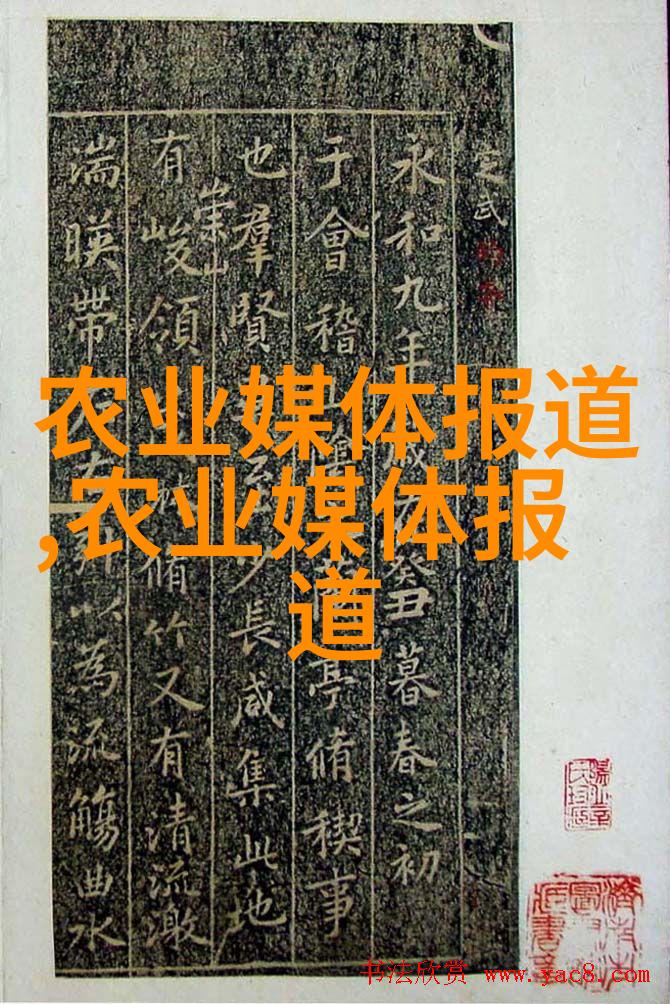 定武
永和九年歲癸丑暮春之初
于會稽山蘭亭脩稧事
也羣賢至少長咸集此地
有崇山峻領脩竹又有清流激
湍暎帶左右以為流觴曲水
农业媒体报道
,农业媒体报
道
书法欣赏 www.yac8.com